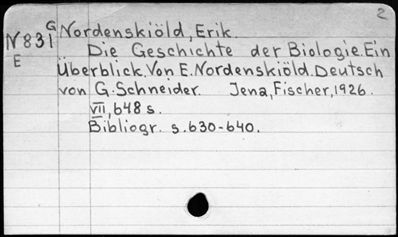 2
G Nordenskiöld, Erik.
N831
E Die Geschichte der Biologie. Ein
Überblick. Von E. Nordenskiöld. Deutsch
von G. Schneider. Jena, Fischer, 1926.
VII, 648 s.
Bibliogr. s. 630-640.